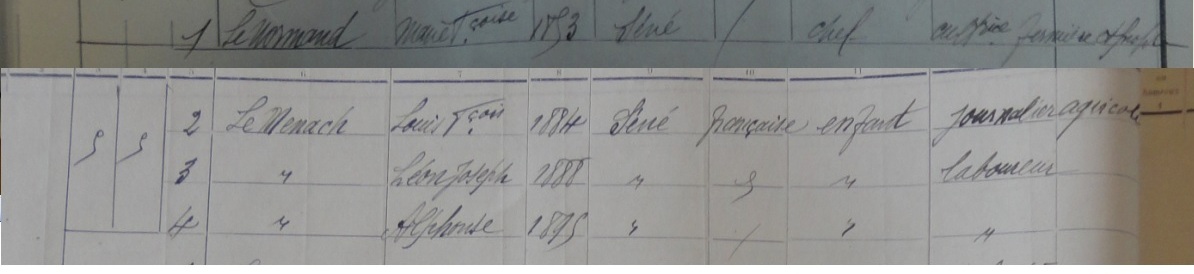 1 Le Normand Marie Fçoise 1853 Séné / chef cultrice fermière
5 6 7 8 9 10 11
2 Le Menach Louis Fçois 1884 Séné française enfant journalier agricole
3 " Léon Joseph 1888 " " " laboureur
4 " Alphonse 1895 " / " "